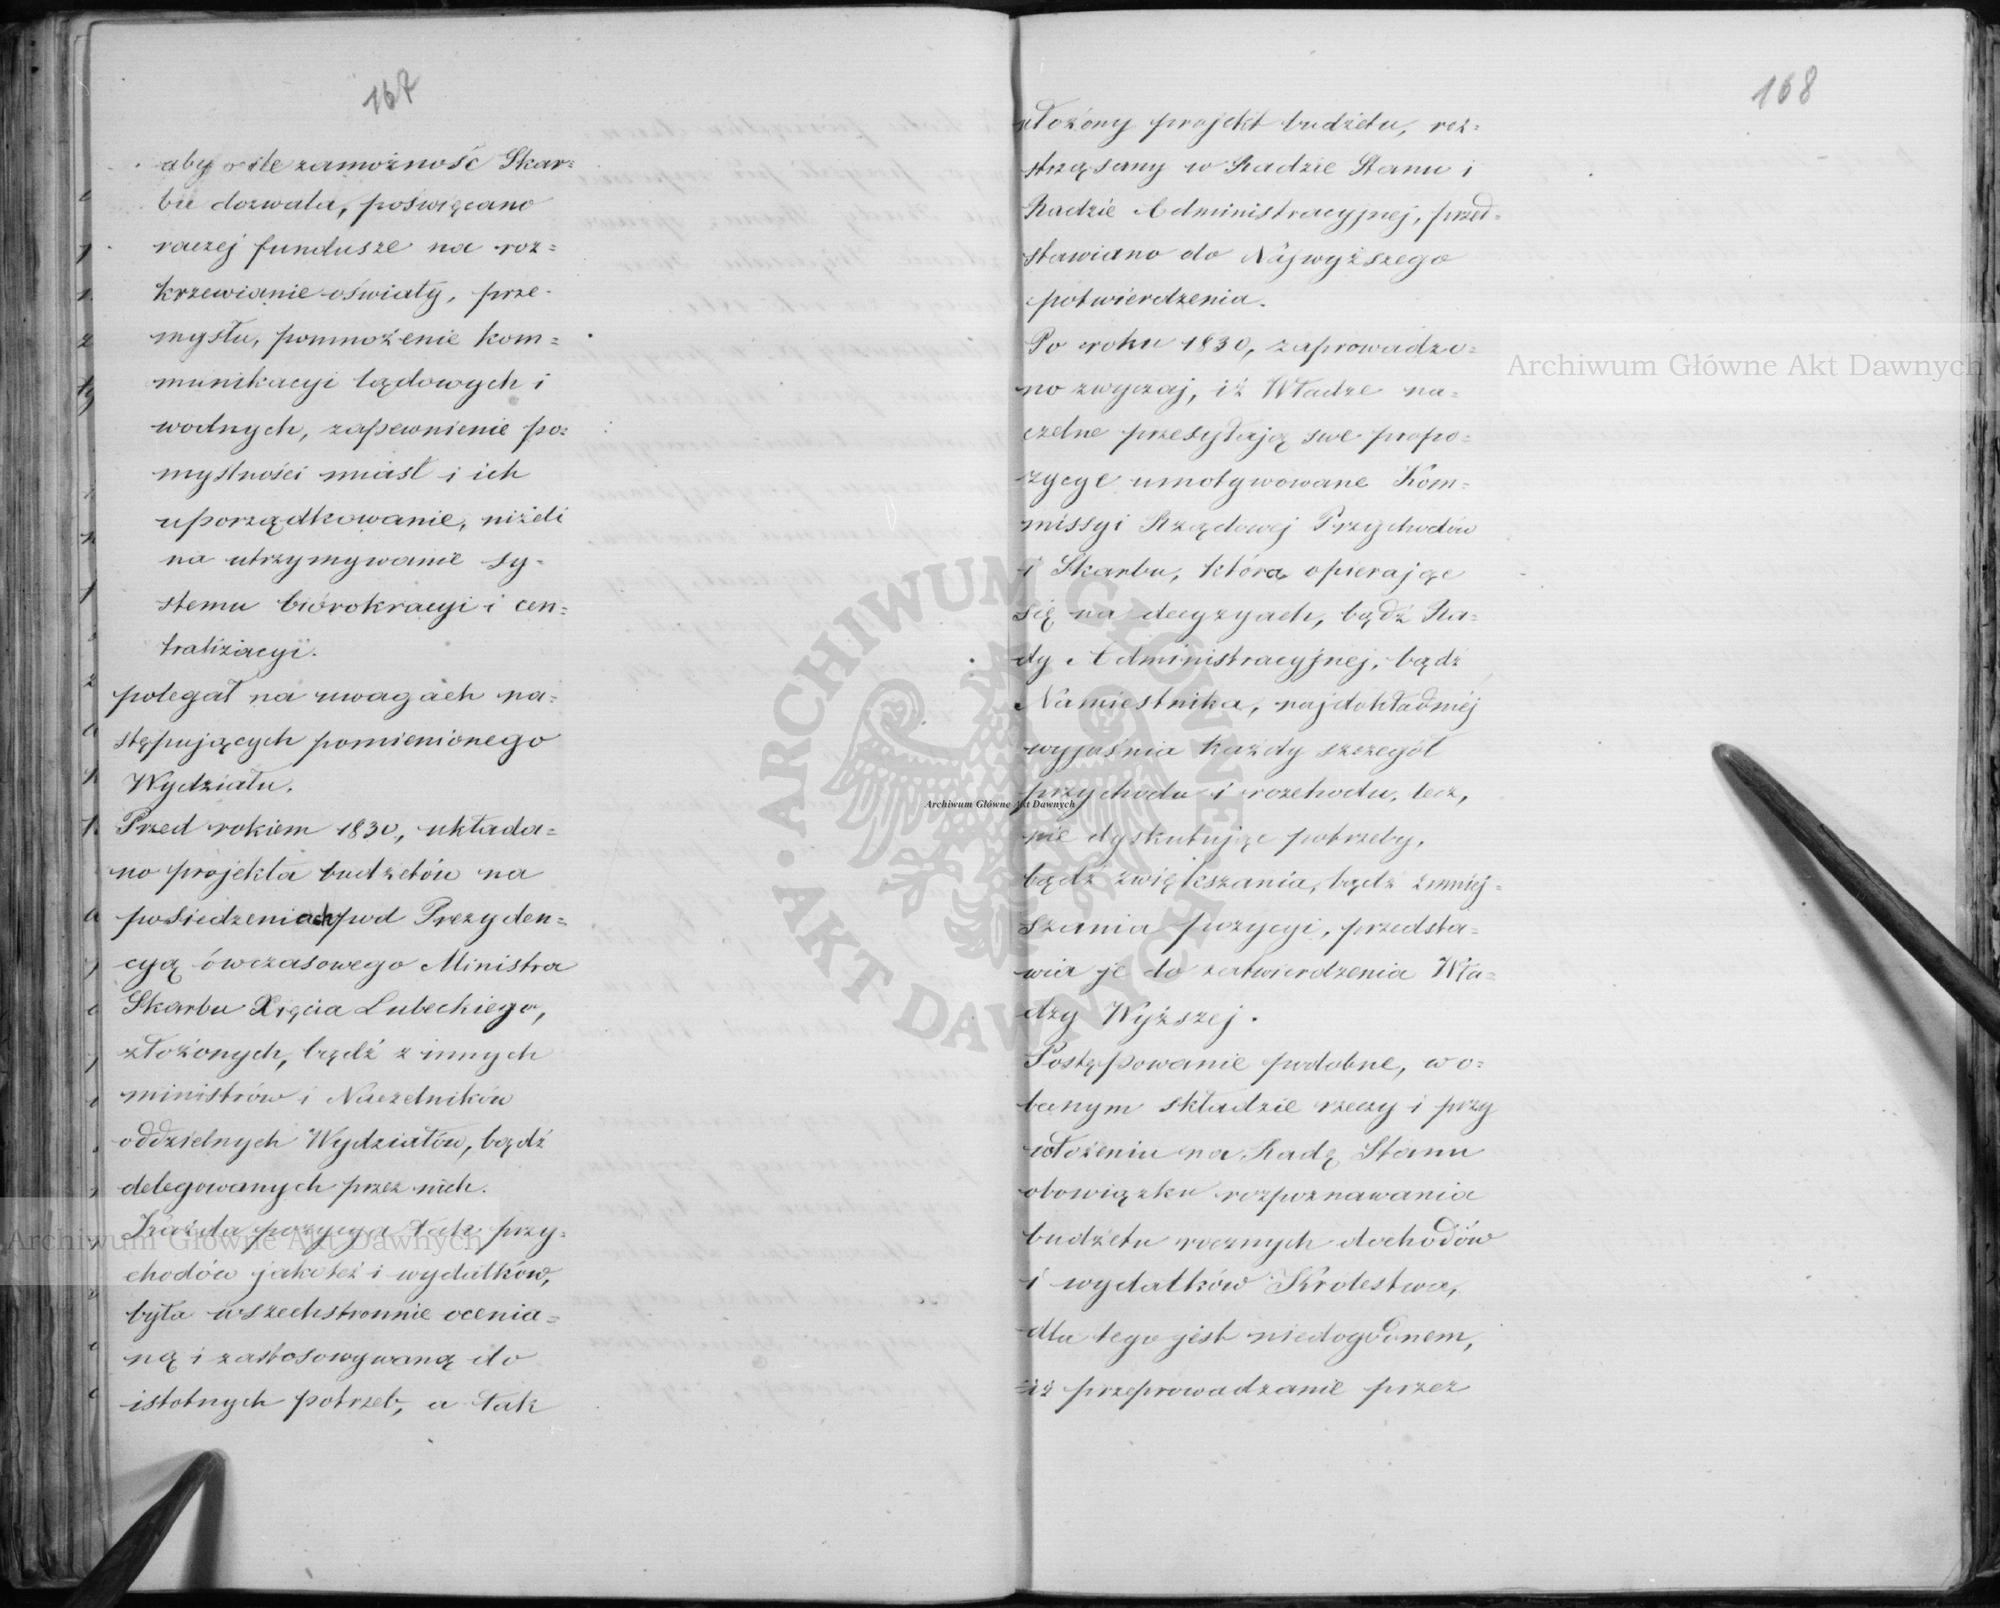 167
aby o ile zamożność Skar=
bu dozwala, poświęcano
raczej fundusze na roz=
krzewianie oświaty, prze-
mysłu, pomnożenie kom=
munikacyi lądowych i
wodnych, zapewnienie po=
myślności miast i ich
uporządkowanie, niżeli
na utrzymywanie sy-
stemu biórokracyi i cen=
tralizacyi.
polegał na uwagach na=
stępujących pomienionego
Wydziału.
Przed rokiem 1830, układa=
no projekta budżetów na
posiedzeniach pod Prezyden=
cyą ówczasowego Ministra
Skarbu Xięcia Lubeckiego,
złożonych, bądź z innych
ministrów i Naczelników
oddzielnych Wydziałów, bądź
delegowanych przez nich.
Każda pozycya tak przy-
chodów jakoteż i wydatków,
była wszechstronnie ocenia=
ną i zastosowywaną do
istotnych potrzeb, a tak
168
ułożony projekt budżetu, roz=
strząsany w Radzie Stanu i
Radzie Administracyjnej, przed-
stawiano do Najwyższego
potwierdzenia.
Po roku 1830, zaprowadzo=
no zwyczaj, iż Władze na=
czelne przesyłają swe propo=
zycye umotywowane Kom=
missyi Rządowej Przychodów
i Skarbu, która opierając
się na decyzyach, bądź Ra=
dy Administracyjnej, bądź
Namiestnika, najdokładniej
wyjaśnia każdy szczegół
przychodu i rozchodu, lecz,
nie dyskutując potrzeby,
bądź zwiększania, bądź zmniej=
szania pozycyi, przedsta=
wia je do zatwierdzenia Wła=
dzy Wyższej.
Postępowanie podobne, w o=
becnym składzie rzeczy i przy
włożeniu na Radę Stanu
obowiązku rozpoznawania
budżetu rocznych dochodów
i wydatków Królestwa,
dla tego jest niedogodnem,
iż przeprowadzanie przez
Archiwum Główne Akt Dawnych
Archiwum Główne Akt Dawnych
Archiwum Główne Akt Dawnych
ARCHIWUM GŁÓWNE · AKT DAWNYCH ·